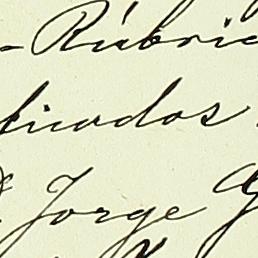 -Rúbric
ficados
Jorge G